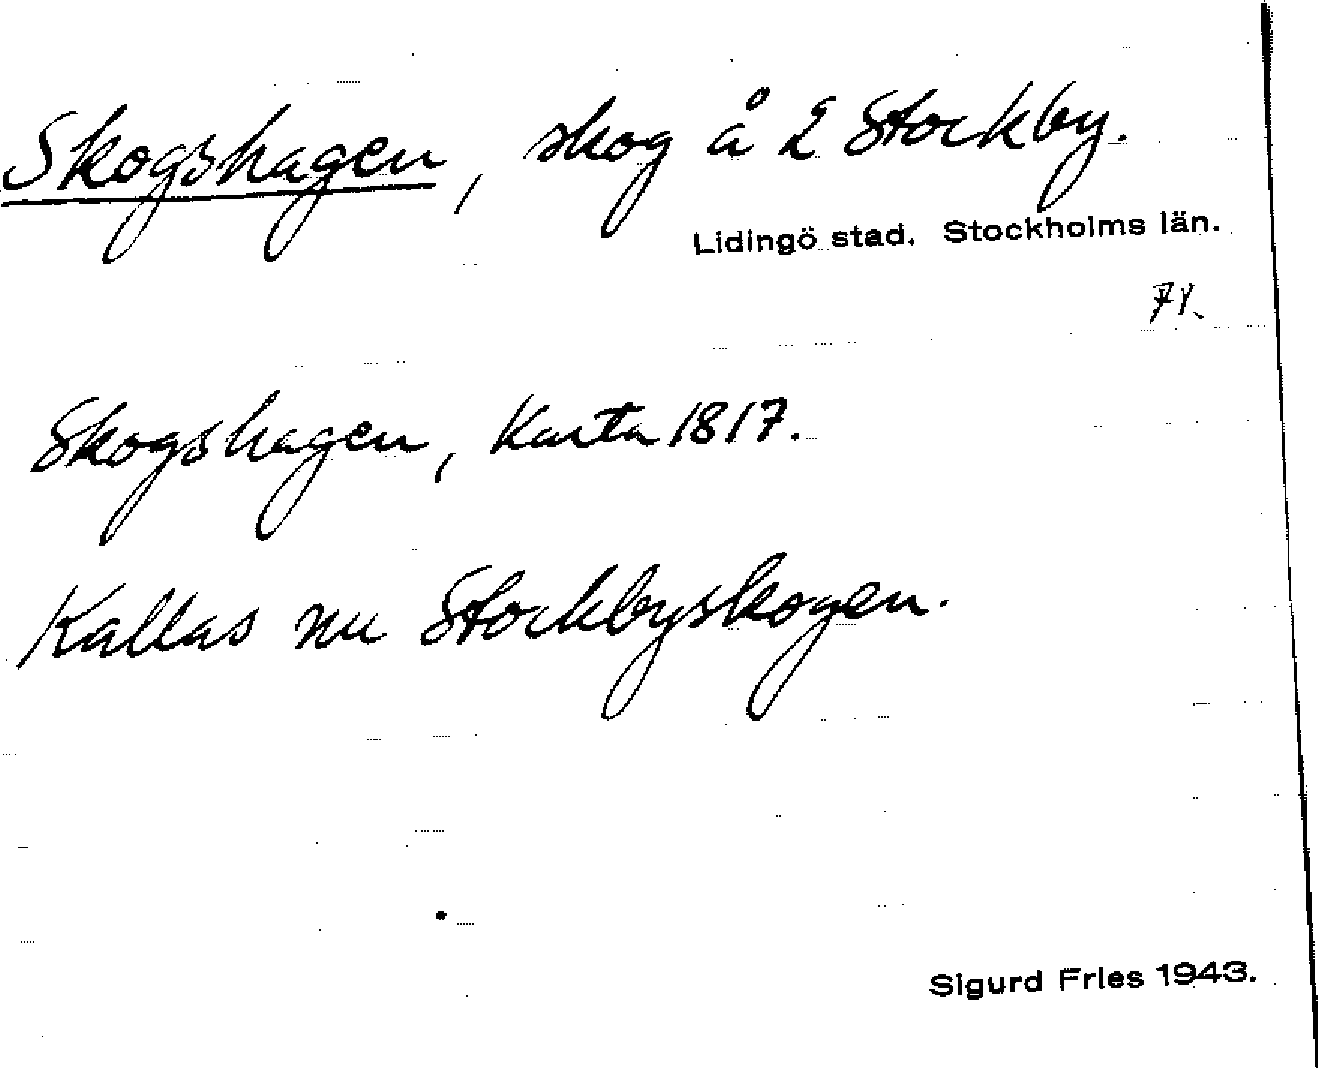 Skogshagen, skog å 2 Stockby.
Lidingö stad. Stockholms län.
Skogshagen, Karta 1817.
Kallas nu Stockbyskogen.
Sigurd Fries 1943.